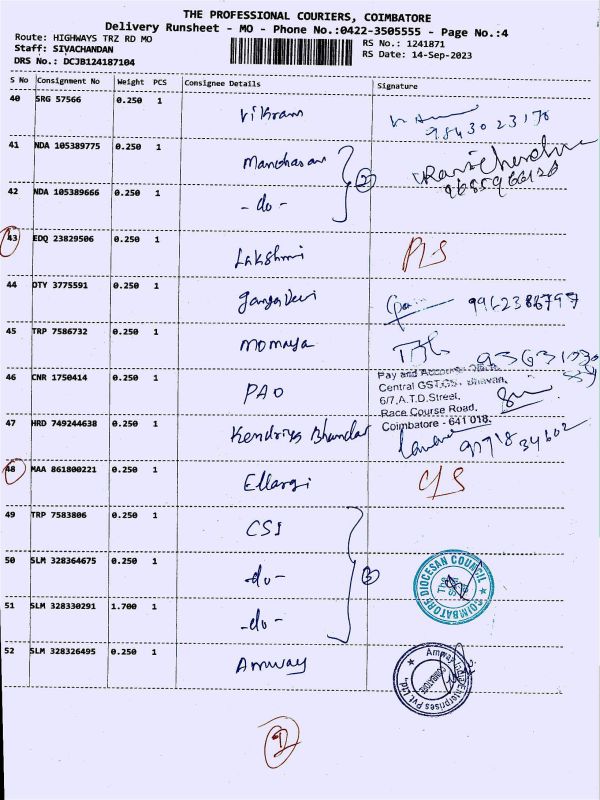 THE PROFESSIONAL COURIERS, COIMBATORE
Delivery Runsheet - MO - Phone No.:0422-3505555 - Page No.:4
Route: HIGHWAYS TRZ RD MO
RS No.: 1241871
Staff: SIVACHANDAN
RS Date: 14-Sep-2023
DRS No.: DCJB124187104
S No Consignment No Weight PCS Consignee Details Signature
40 SRG 57566 0.250 1 Vikram
9843023170
41 NDA 105389775 0.250 1 Manoharan
2
42 NDA 105389666 0.250 1 -do-
43 EDQ 23829506 0.250 1 Lakshmi
44 DTY 3775591 0.250 1 Ganga Devi
45 TRP 7586732 0.250 1 Momaya
46 CNR 1750414 0.250 1 PAO
Pay and Accounts Office,
Central GST,GS. Bhavan,
6/7,A.T.D.Street,
Race Course Road,
Coimbatore - 641 018.
47 HRD 749244638 0.250 1 Kendriya Bhandar
48 MAA 861800221 0.250 1 Ellargi
49 TRP 7583806 0.250 1 CSI
50 SLM 328364675 0.250 1 -do-
3
COIMBATORE DIOCESAN COUNCIL
51 SLM 328330291 1.700 1 -do-
52 SLM 328326495 0.250 1 Amway
Amway India Enterprises Pvt Ltd
COIMBATORE
9